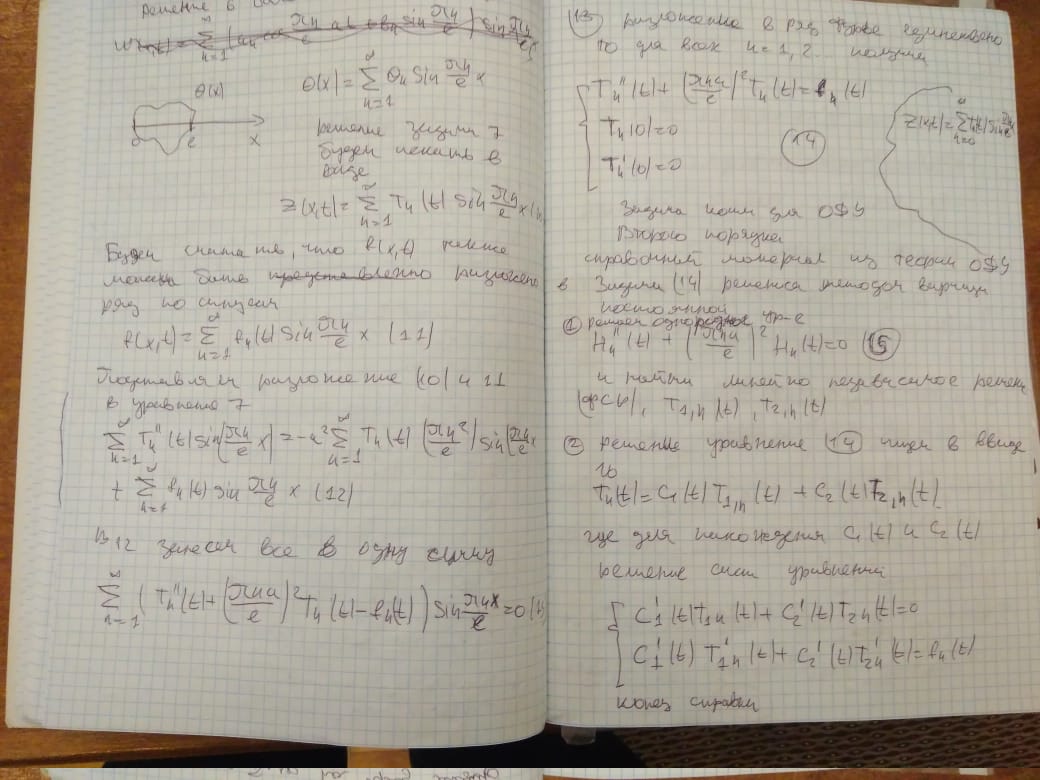 решение в
θ(x)
0 e x
θ(x)=∑_{n=1}^{∞} θn sin πn/e x
решение задачи 7
будем искать в
виде
z(x,t)=∑_{n=1}^{∞} Tn(t) sin πn/e x (10
Будем считать, что f(x,t) также
может быть разложено
ряд по синусам
f(x,t)=∑_{n=1}^{∞} fn(t) sin πn/e x (11)
Подставляя разложение (10) и 11
в уравнение 7
∑_{n=1}^{∞} Tn''(t) sin(πn/e x)=-a²∑_{n=1}^{∞} Tn(t) (πn/e ²) sin(πn/e x
+ ∑_{n=1}^{∞} fn(t) sin πn/e x (12)
В 12 занесем все в одну сумму
∑_{n=1}^{∞} (Tn''(t)+(πna/e)² Tn(t)-fn(t)) sin πnx/e=0 (13
(13) разложение в ряд Фурье единственно
то для всех n=1,2 получим
{ Tn''(t)+(πna/e)² Tn(t)=fn(t)
Tn(0)=0
Tn'(0)=0
(14)
z(x,t)=∑_{n=0}^{∞} Tn(t) sin πn/e x
Задача коши для ОДУ
Второго порядка
справочный материал из теории ОДУ
в Задачи (14) решения методом вариации
постоянной
① решаем однородное ур-е
Hn''(t) + (πna/e)² Hn(t)=0 (15)
и найти линейно независимое решени
(фсы), T1,n(t), T2,n(t)
② решение уравнение (14) ищем в ввиде
16
Tn(t)=C1(t)T1,n(t) + C2(t)T2,n(t)
где для нахождения C1(t) и C2(t)
решение сист уравнений
{ C1'(t)T1n(t)+C2'(t)T2n(t)=0
C1'(t) T1n'(t)+C2'(t)T2n'(t)=fn(t)
конец справки